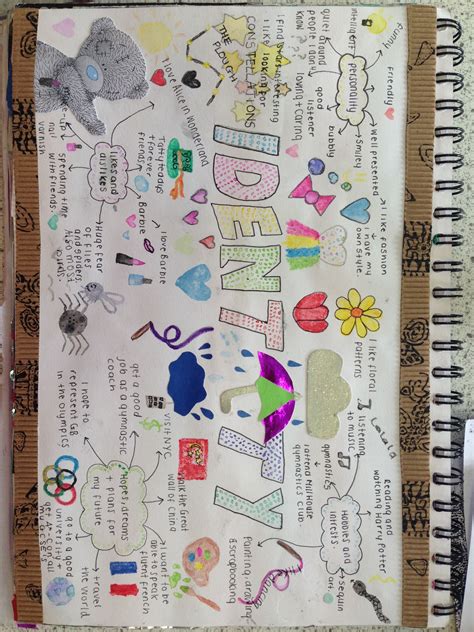 Funny
intelligent
Friendly
personality
quiet around
people I don't
know ???
good
listener
loving + caring
bubbly
Smiley
Well presented
I like fashion
I have my
own style.
I like floral
patterns
Lalala
listening
to music
Reading and
watching Harry Potter
Hobbies and
interests
sequin
art
gymnastics
I attend Mill House
gymnastics club.
Painting, drawing
& scrapbooking
I find stars interesting
I like looking for
CONSTELLATIONS
THE PLOUGH
IDENTITY
I love Alice in wonderland
Tatty teddys
forever
friends
Barbie
I love Barbie
likes and
dislikes
make-up
nail
varnish
spending time
with friends.
Huge fear
of flies
and spiders.
Also most
animals.
I visit NYC
walk the Great
wall of china
get a good
job as a gymnastic
coach
Hopes, dreams
+ plans for
my future
I hope to
represent GB
in the olympics
go to a good
university +
travel
the world
I want to be
able to speak
fluent french